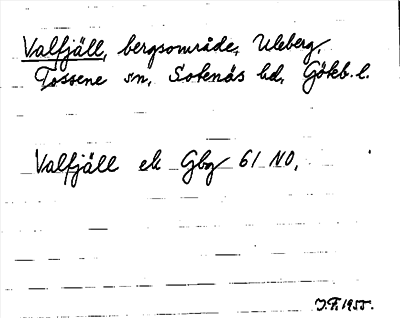 Valfjäll, bergsområde, Uleberg,
Tossene sn, Sotenäs hd, Göteb. l.
Valfjäll ek Gbg 61 NO.
J.F. 1955.